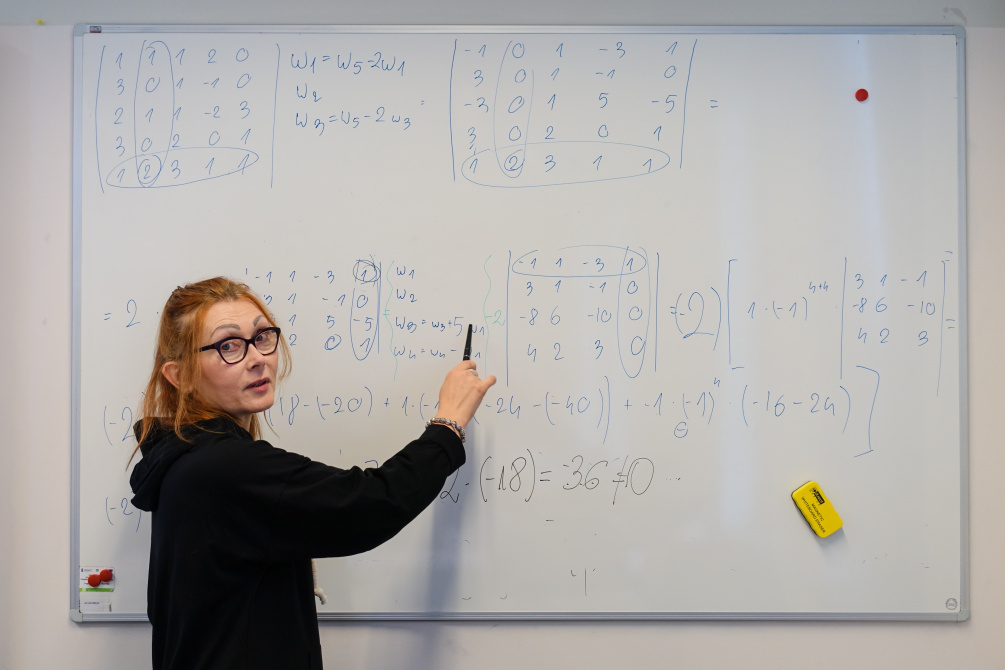 1 1 1 2 0
3 0 1 -1 0
2 1 1 -2 3
3 0 2 0 1
1 2 3 1 1
w1 = w5-2w1
w2
w3 = w5-2w3
-1 0 1 -3 1
3 0 1 -1 0
-3 0 1 5 -5
3 0 2 0 1
1 2 3 1 1
=
= 2 ·
-1 1 -3 1
1 -1 0
1 5 -5
2 0 1
=
w1
w2
w3 = w3+5 w1
w4 = w4 -
-2
-1 1 -3 1
3 1 -1 0
-8 6 -10 0
4 2 3 0
=(-2) [ 1 · (-1)^{4+4}
3 1 -1
-8 6 -10
4 2 3
=
(-2
(18-(-20) + 1·(- -24 -(-40)) + -1 · (-1)^4 · (-16-24) ]
(-2)
2 · (-18) = 36 ≠ 0 ...